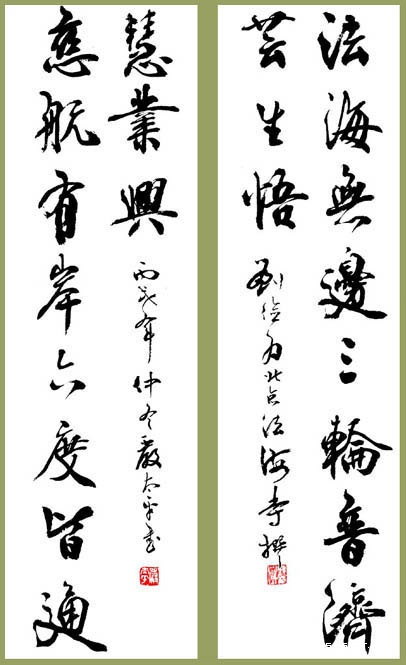 法海無邊三輪普濟
芸生悟
劉為北京法海寺撰
慈航有岸六度皆通
慧業興
丙戌年仲冬嚴太平書